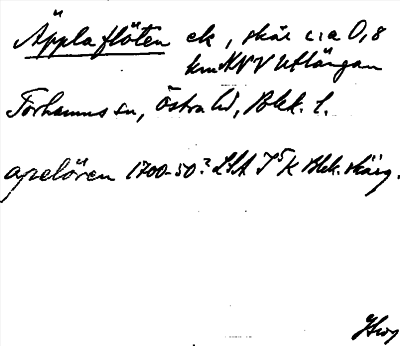 Äpplaflöten ek, skär c:a 0,8
km NNV Utlängan
Torhamns sn, Östra hd, Blek. l.
apelören 1700-50? LSA Blek. skärg.